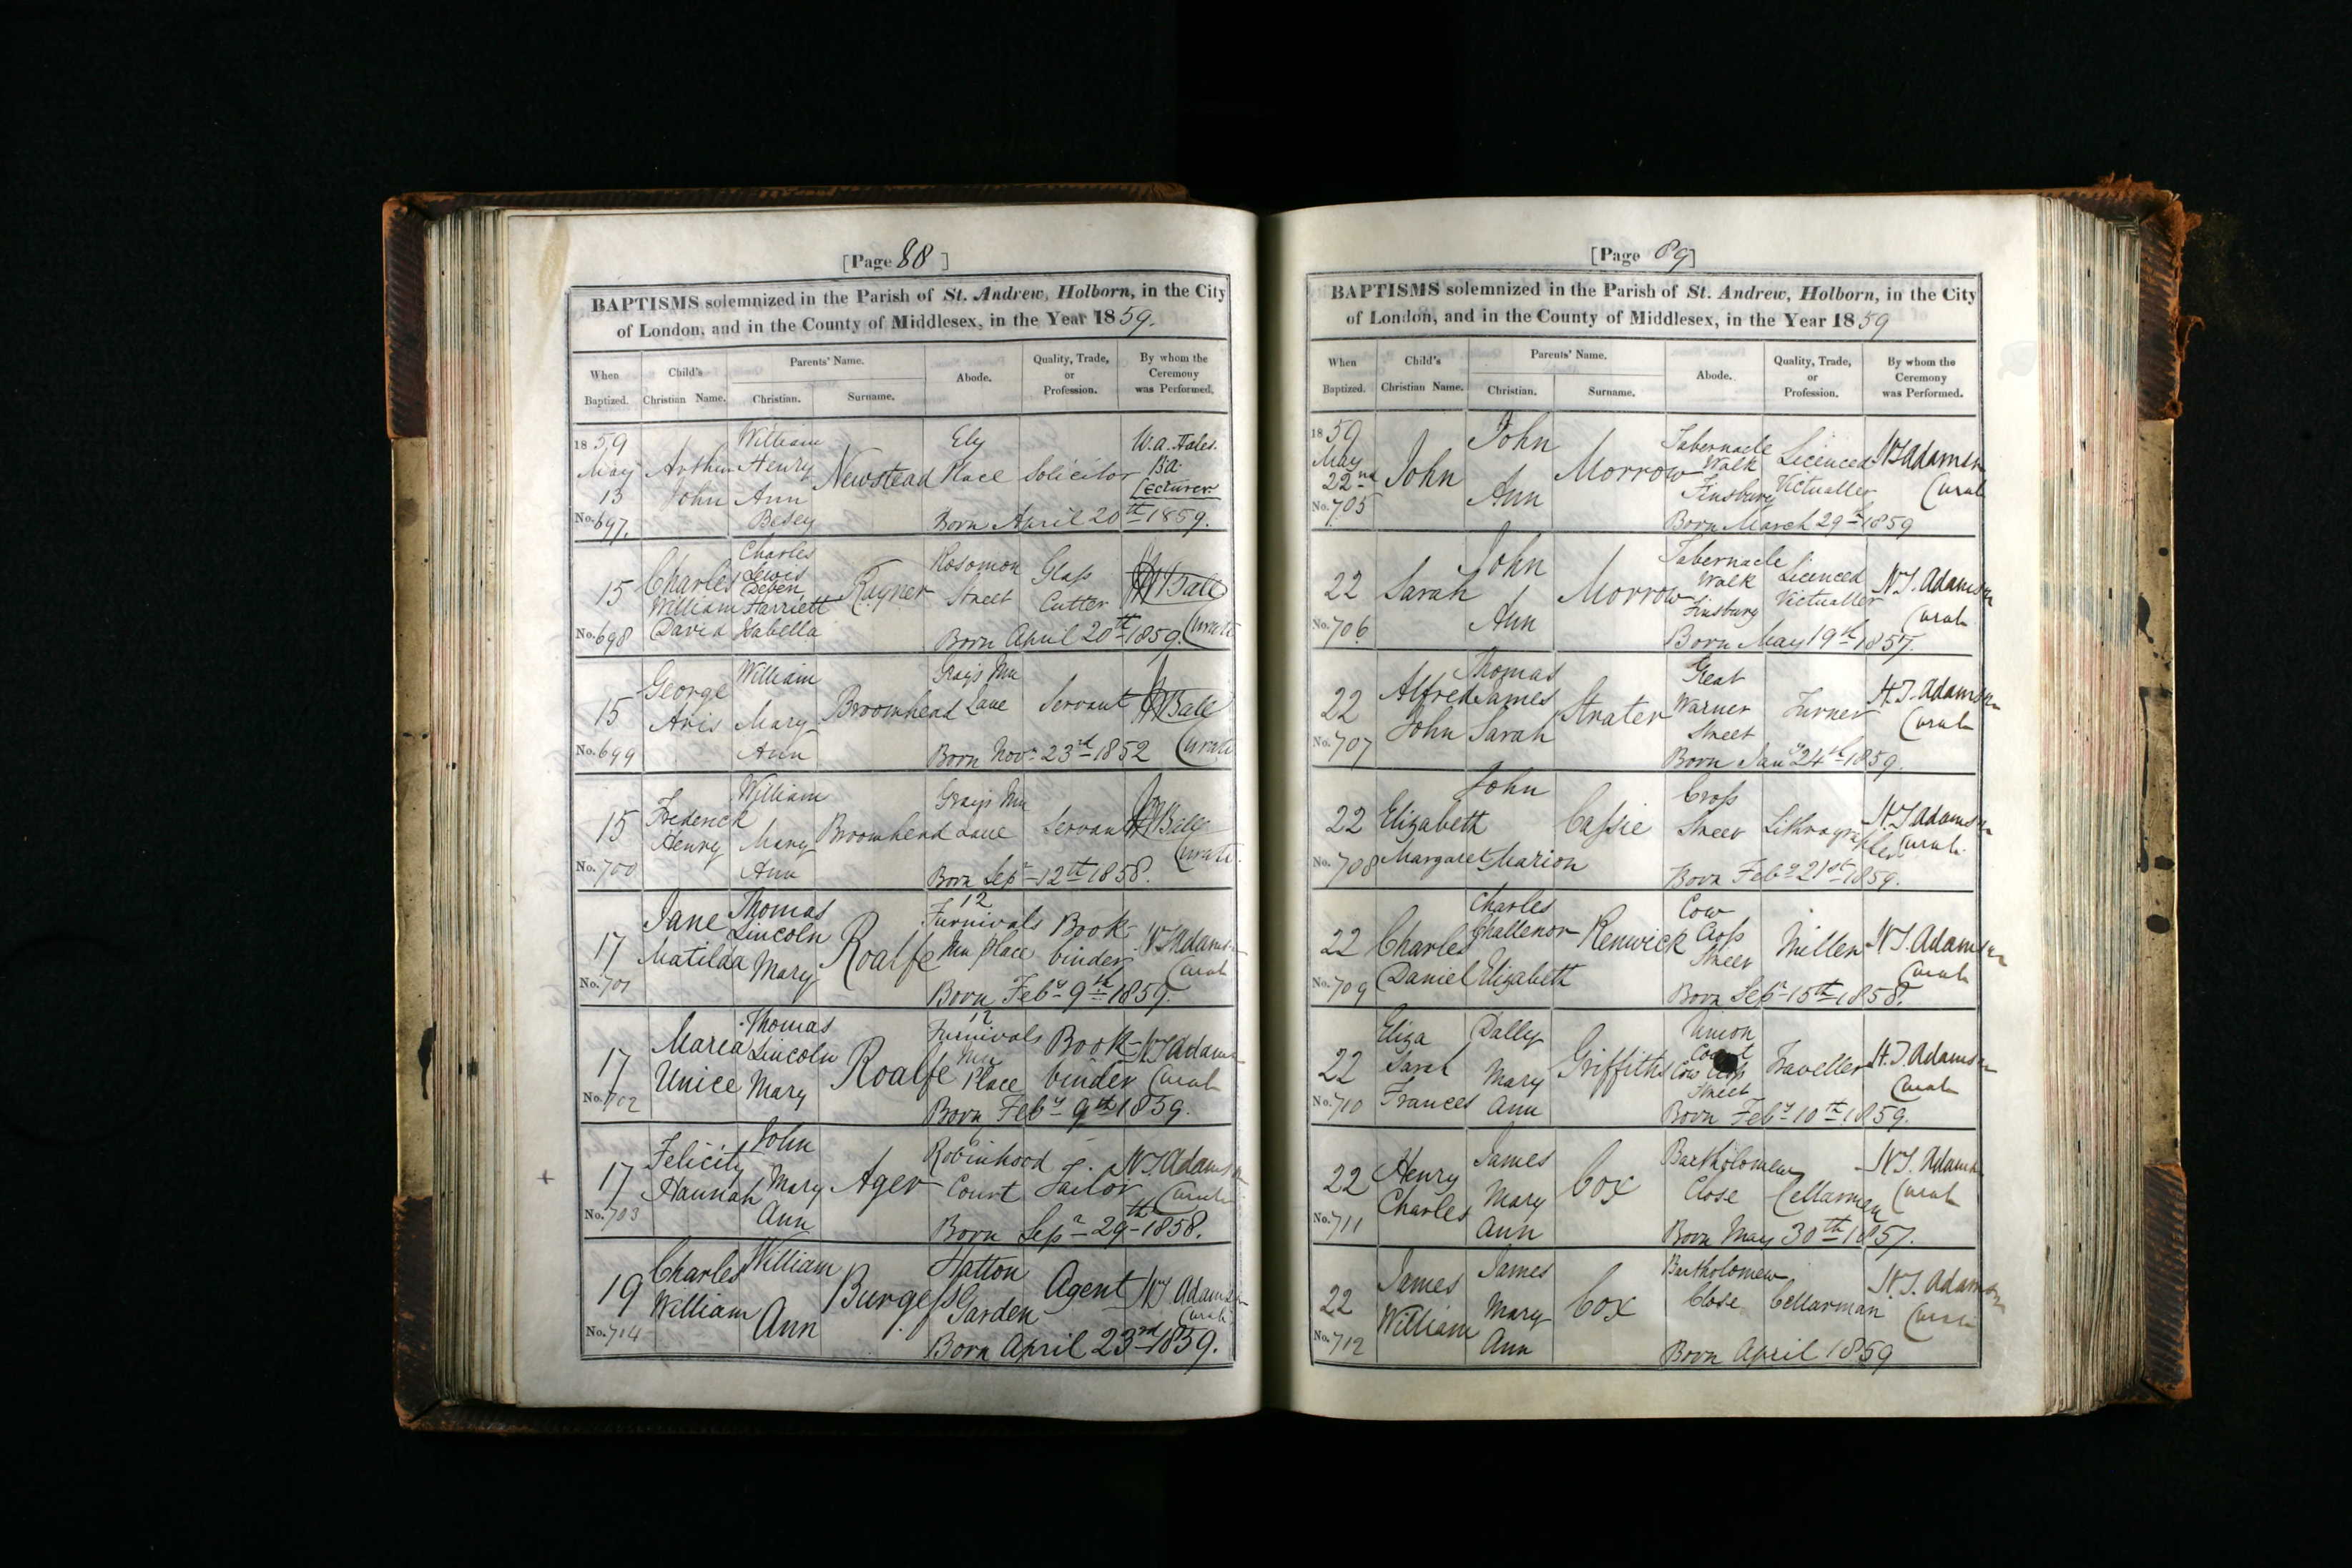 [Page 88]
BAPTISMS solemnized in the Parish of St. Andrew, Holborn, in the City
of London, and in the County of Middlesex, in the Year 1859.
When Baptized. Child's Christian Name. Parents' Name. Christian. Surname. Abode. Quality, Trade, or Profession. By whom the Ceremony was Performed.
1859 May 13 No. 697. Arthur John William Henry Ann Betsy Newstead Ely Place Solicitor W.A. Hales. BA. Lecturer
Born April 20th 1859.
15 No. 698 Charles William David Charles Lewis Harriett Isabella Rayner Rosomon Street Glass Cutter Curate
Born April 20th 1859.
15 No. 699 George Avis William Mary Ann Broomhead Grays Inn Lane Servant Curate
Born Novr 23rd 1852
15 No. 700 Frederick Henry William Mary Ann Broomhead Grays Inn Lane Servant Curate
Born Sepr 12th 1858.
17 No. 701 Jane Matilda Thomas Lincoln Mary Roalfe 12 Furnivals Inn Place Book binder Adamson Curate
Born Feby 9th 1859.
17 No. 702 Maria Unice Thomas Lincoln Mary Roalfe 12 Furnivals Inn Place Book binder Adamson Curate
Born Feby 9th 1859.
17 No. 703 Felicity Hannah John Mary Ann Ager Robinhood Court Tailor Adamson Curate
Born Sepr 29th 1858.
19 No. 714 Charles William William Ann Burgess Hatton Garden Agent Adamson Curate
Born April 23rd 1859.
[Page 89]
BAPTISMS solemnized in the Parish of St. Andrew, Holborn, in the City
of London, and in the County of Middlesex, in the Year 1859
When Baptized. Child's Christian Name. Parents' Name. Christian. Surname. Abode. Quality, Trade, or Profession. By whom the Ceremony was Performed.
1859 May 22nd No. 705 John John Ann Morrow Tabernacle Walk Finsbury Licenced Victualler Adamson Curate
Born March 29th 1859
22 No. 706 Sarah John Ann Morrow Tabernacle Walk Finsbury Licenced Victualler Adamson Curate
Born May 19th 1857.
22 No. 707 Alfred John Thomas James Sarah Strater Great Warner Street Turner Adamson Curate
Born Jany 24th 1859.
22 No. 708 Elizabeth Margaret John Marion Cassie Cross Street Lithographer Adamson Curate
Born Feby 21st 1859.
22 No. 709 Charles Daniel Charles Challenor Elizabeth Renwick Cow Cross Street Miller Adamson Curate
Born Sepr 15th 1858.
22 No. 710 Eliza Sarah Frances Dally Mary Ann Griffiths Union Court Cow Cross Street Traveller Adamson Curate
Born Feby 10th 1859.
22 No. 711 Henry Charles James Mary Ann Cox Bartholomew Close Cellarman Adamson Curate
Born May 30th 1857.
22 No. 712 James William James Mary Ann Cox Bartholomew Close Cellarman Adamson Curate
Born April 1859